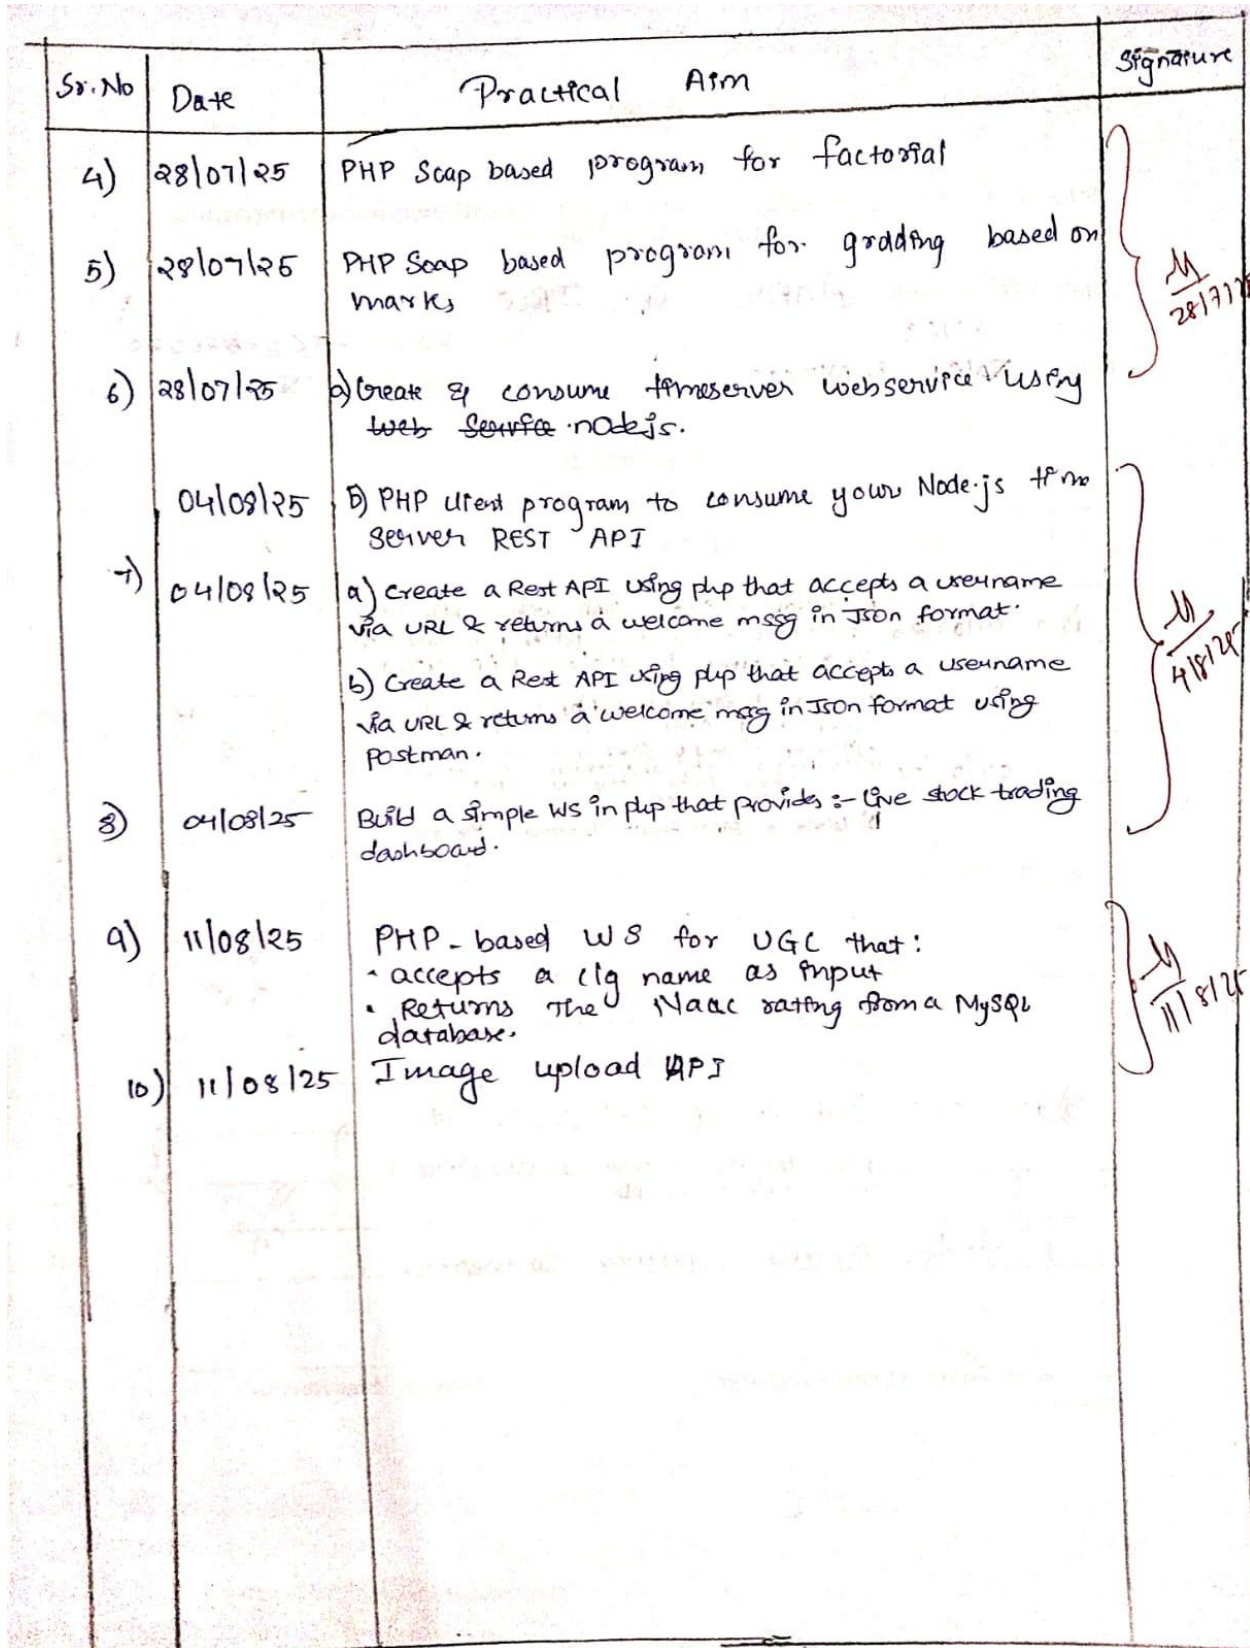 Sr. No Date Practical Aim Signature
4) 28/07/25 PHP Soap based program for factorial
5) 28/07/25 PHP Soap based program for grading based on
marks
28/7/25
6) 28/07/25 a) Create & consume timeserver webservice using
web Service nodejs.
04/08/25 b) PHP client program to consume your Node.js time
server REST API
7) 04/08/25 a) Create a Rest API using php that accepts a username
via URL & returns a welcome mssg in Json format.
4/8/25
b) Create a Rest API using php that accepts a username
via URL & returns a welcome msg in Json format using
postman.
8) 04/08/25 Build a simple WS in php that provides :- live stock trading
dashboard.
9) 11/08/25 PHP-based WS for UGC that:
• accepts a clg name as input
• Returns the Naac rating from a MySQL
database.
11/8/25
10) 11/08/25 Image upload API